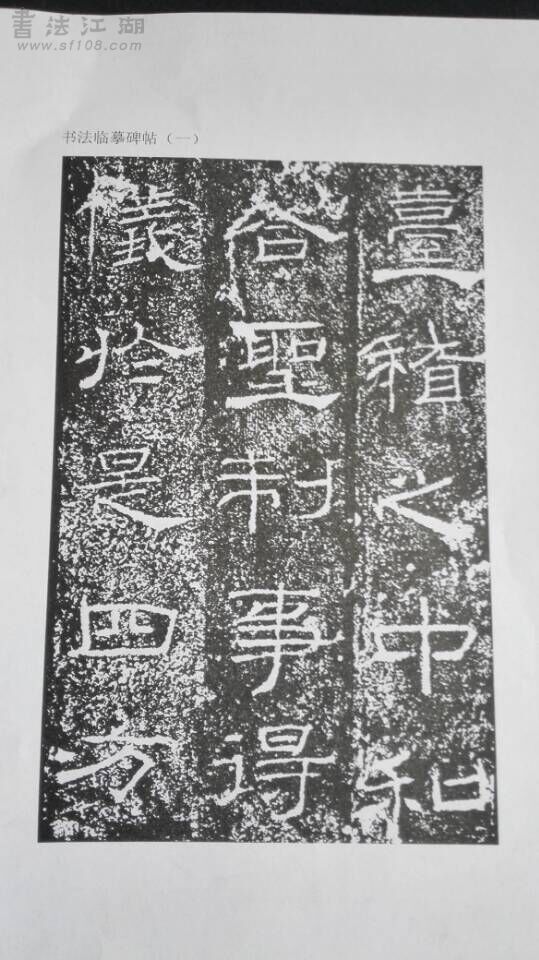 書法江湖
www.sf108.com
书法临摹碑帖（一）
臺稽之中和
合聖制事得
儀於是四方